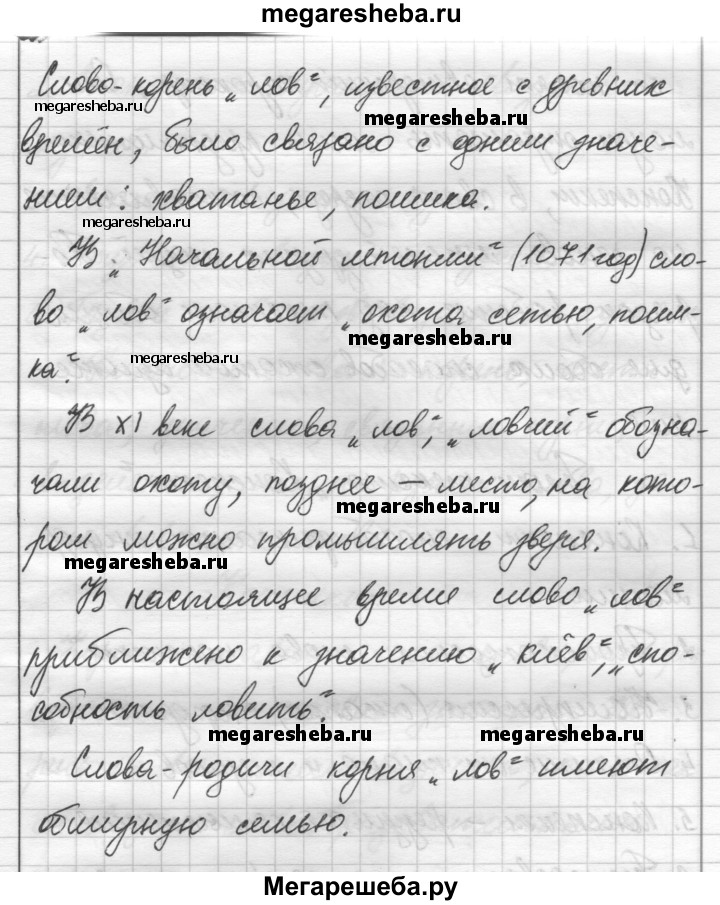 megaresheba.ru
Слово-корень „лов“, известное с древних
megaresheba.ru
megaresheba.ru
времён, было связано с одним значе-
нием: хватанье, поимка.
megaresheba.ru
В „Начальной летописи“ (1071 год) сло-
во „лов“ означает „охота сетью, поим-
megaresheba.ru
megaresheba.ru
ка“.
В XI веке слова „лов“, „ловчий“ обозна-
чали охоту, позднее — место, на кото-
megaresheba.ru
ром можно промышлять зверя.
megaresheba.ru
В настоящее время слово „лов“
приближено к значению „клёв“, „спо-
собность ловить“.
megaresheba.ru
megaresheba.ru
Слова-родичи корня „лов“ имеют
обширную семью.
Мегарешеба.ру